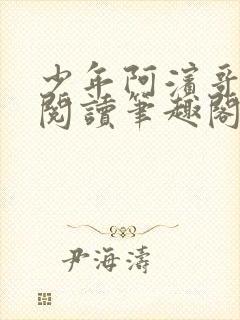 少年阿濱哥
閱讀筆趣閣
尹海濤